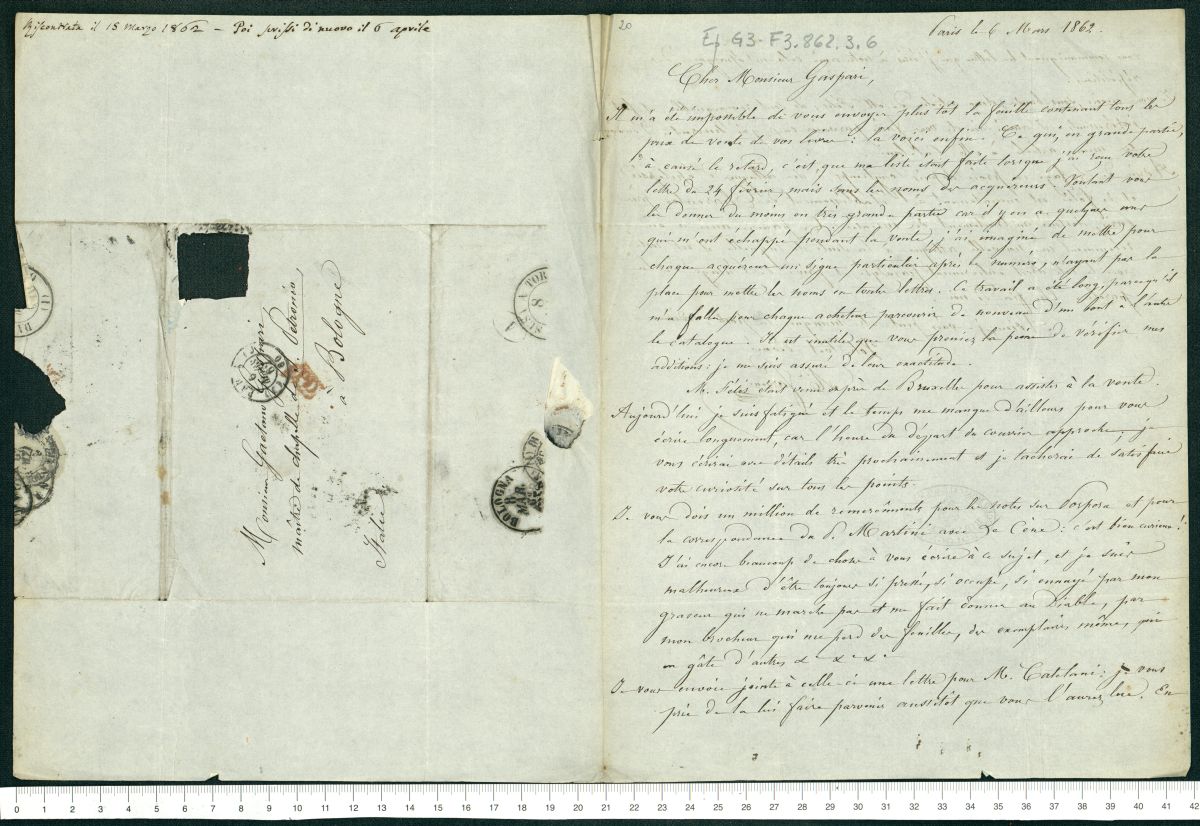 Riscontrata il 18 Marzo 1862 – Poi scrissi di nuovo il 6 aprile
Monsieur Gaetano Gaspari
maître de chapelle de S. Petronio
à Bologne
Italie
BOLOGNA
8
MAR
20
Ep. G3-F3.862.3.6
Paris le 6 Mars 1862.
Cher Monsieur Gaspari,
Il m'a été impossible de vous envoyer plus tôt la feuille contenant tous les
prix de vente de vos livres : la voici enfin. Ce qui, en grande partie,
a causé le retard, c'est que ma liste étant faite lorsque j'ai reçu votre
lettre du 24 février, mais sans les noms des acquéreurs. Voulant vous
les donner du moins en très grande partie car il y en a quelques uns
qui m'ont échappé pendant la vente, j'ai imaginé de mettre pour
chaque acquéreur un signe particulier après le numéro, n'ayant pas la
place pour mettre les noms en toutes lettres. Ce travail a été long, parcequ'il
m'a fallu pour chaque acheteur parcourir de nouveau d'un bout à l'autre
le catalogue. Il est inutile que vous preniez la peine de vérifier mes
additions : je me suis assuré de leur exactitude.
M. Fétis était venu exprès de Bruxelles pour assister à la vente.
Aujourd'hui je suis fatigué et le temps me manque d'ailleurs pour vous
écrire longuement, car l'heure du départ du courrier approche, je
vous écrirai avec détails très prochainement et je tâcherai de satisfaire
votre curiosité sur tous les points.
Je vous dois un million de remerciments pour les notes sur Porpora et pour
la correspondance du P. Martini avec Le Cène : c'est bien curieux !
J'ai encore beaucoup de choses à vous écrire à ce sujet, et je suis
malheureux d'être toujours si pressé, si occupé, si ennuyé par mon
graveur qui ne marche pas et me fait donner au Diable, par
mon brocheur qui me perd des feuilles, des exemplaires mêmes, qui
en gâte d'autres &a &a &a
Je vous envoie jointe à celle ci une lettre pour M. Catelani : je vous
prie de la lui faire parvenir aussitôt que vous l'aurez lue. En